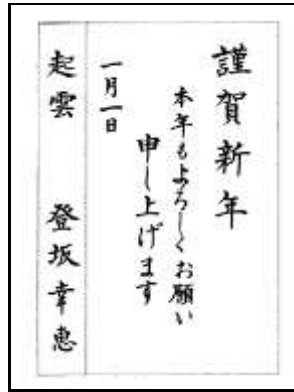 謹賀新年
本年もよろしくお願い
申し上げます
一月一日
起雲 登坂幸恵